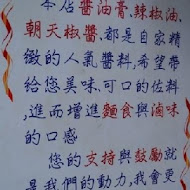 本店醬油膏、辣椒油、
朝天椒醬,都是自家精
緻的人氣醬料,希望帶
給您美味、可口的佐料
,進而增進麵食與滷味
的口感
您的支持與鼓勵就
是我們的動力,我會更